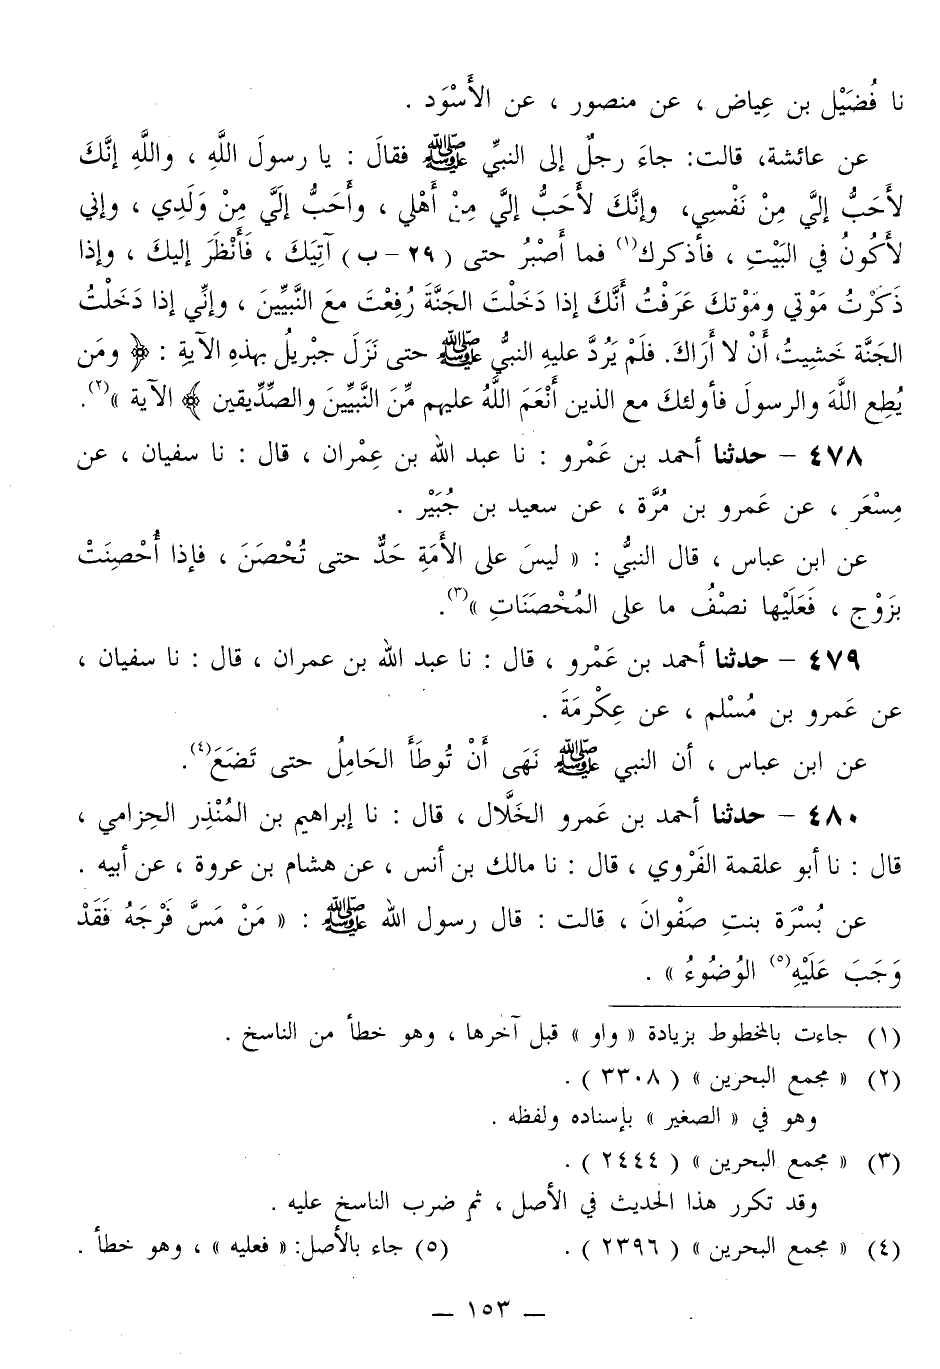 نا فُضَيْل بن عِياض ، عن منصور ، عن الأَسْوَد .
عن عائشة، قالت: جاءَ رجلٌ إلى النبيِّ ﷺ فقالَ : يا رسولَ اللَّهِ ، واللَّهِ إنَّكَ
لأَحَبُّ إليَّ مِنْ نَفْسِي، وإنَّكَ لأَحَبُّ إليَّ مِنْ أَهْلي ، وأَحَبُّ إلَيَّ مِنْ وَلَدِي ، وإني
لأَكُونُ في البَيْتِ ، فأذكرك(١) فما أَصْبُرُ حتى ( ٢٩ - ب ) آتِيَكَ ، فَأَنْظَرَ إليكَ ، وإذا
ذَكَرْتُ مَوْتي ومَوْتكَ عَرَفْتُ أَنَّكَ إذا دَخَلْتَ الجَنَّةَ رُفِعْتَ معَ النَّبِيِّينَ ، وإنِّي إذا دَخَلْتُ
الجَنَّة خَشِيتُ، أَنْ لا أَرَاكَ. فلَمْ يَرُدَّ عليهِ النبيُّ ﷺ حتى نَزَل جبْريلُ بهذهِ الآيةِ : ﴿ ومَن
يُطِع اللَّهَ والرسولَ فأولئكَ مع الذين أَنْعَمَ اللَّهُ عليهم مِّنَ النَّبِيِّينَ والصِّدِّيقين ﴾ الآية »(٢).
٤٧٨ - حدثنا أحمد بن عَمْرو : نا عبد الله بن عِمْران ، قال : نا سفيان ، عن
مِسْعَر ، عن عَمرو بن مُرَّة ، عن سعيد بن جُبَيْر .
عن ابن عباس ، قال النبيُّ : « ليسَ على الأَمَةِ حَدٌّ حتى تُحْصَنَ ، فإذا أُحْصِنَتْ
بزَوْجٍ ، فَعَلَيْها نصْفُ ما على المُحْصَنَاتِ »(٣).
٤٧٩ - حدثنا أحمد بن عَمْرو ، قال : نا عبد الله بن عمران ، قال : نا سفيان ،
عن عَمرو بن مُسْلم ، عن عِكْرمَةَ .
عن ابن عباس ، أن النبي ﷺ نَهَى أَنْ تُوطَأَ الحَامِلُ حتى تَضَعَ(٤).
٤٨٠ - حدثنا أحمد بن عَمرو الخَلَّال ، قال : نا إبراهيم بن المُنْذِر الحِزامي ،
قال : نا أبو علقمة الفَرْوي ، قال : نا مالك بن أنس ، عن هشام بن عروة ، عن أبيه .
عن بُسْرَة بنتِ صَفْوانَ ، قالت : قال رسول الله ﷺ : « مَنْ مَسَّ فَرْجَهُ فَقَدْ
وَجَبَ عَلَيْهِ(٥) الوُضُوءُ » .
(١) جاءت بالمخطوط بزيادة « واو » قبل آخرها ، وهو خطأ من الناسخ .
(٢) « مجمع البحرين » ( ٣٣٠٨ ) .
وهو في « الصغير » بإسناده ولفظه .
(٣) « مجمع البحرين » ( ٢٤٤٤ ) .
وقد تكرر هذا الحديث في الأصل ، ثم ضرب الناسخ عليه .
(٤) « مجمع البحرين » ( ٢٣٩٦ ) . (٥) جاء بالأصل: « فعليه » ، وهو خطأ .
— ١٥٣ —